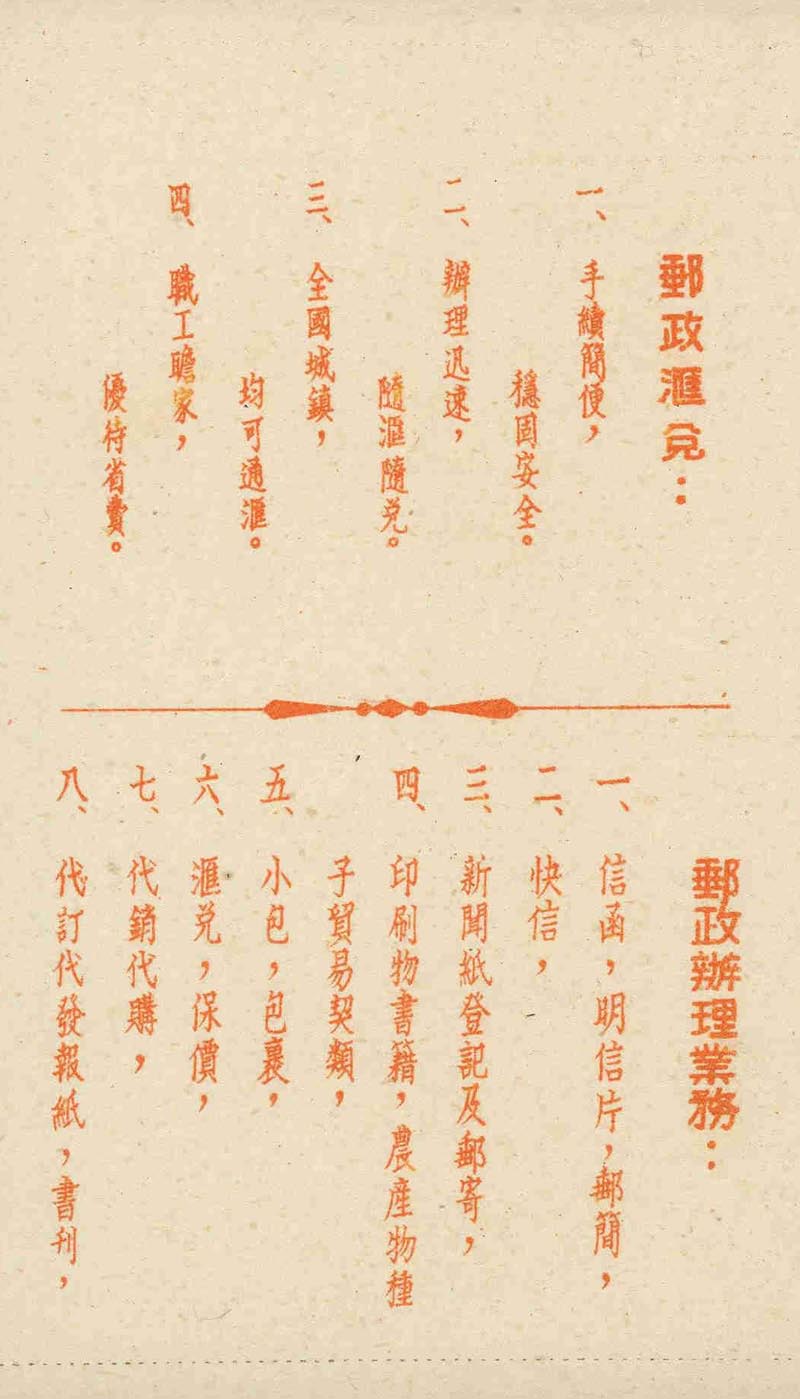 郵政滙兌：
一、手續簡便，
穩固安全。
二、辦理迅速，
隨滙隨兌。
三、全國城鎮，
均可通滙。
四、職工贍家，
優待省費。
郵政辦理業務：
一、信函，明信片，郵簡，
二、快信，
三、新聞紙登記及郵寄，
四、印刷物書籍，農產物種
子貿易契類，
五、小包，包裹，
六、滙兌，保價，
七、代銷代購，
八、代訂代發報紙，書刊，